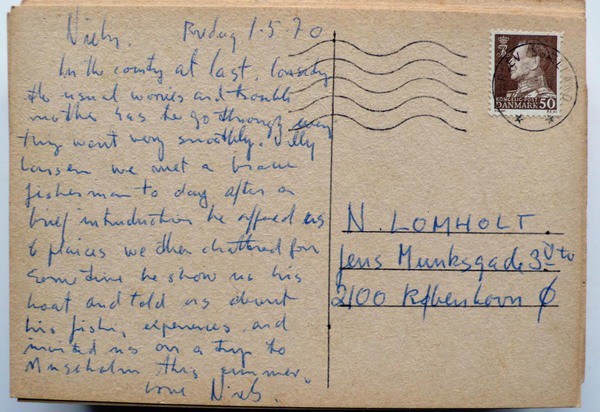 Nisby. Fredag 1.5.70
In the country at last,
the usual worries and trouble
mother has to go through every
thing went very smoothly. Willy
Larsen we met a brave
fisherman to day after a
brief introduction he offered us
6 plaices we then chattered for
sometime he show us his
boat and told us about
his fishing experiences and
invited us on a trip to
this summer.
Love Niels.
KONGELIG POST
DANMARK 50
N. LOMHOLT.
Jens Munksgade 3
2100 København Ø